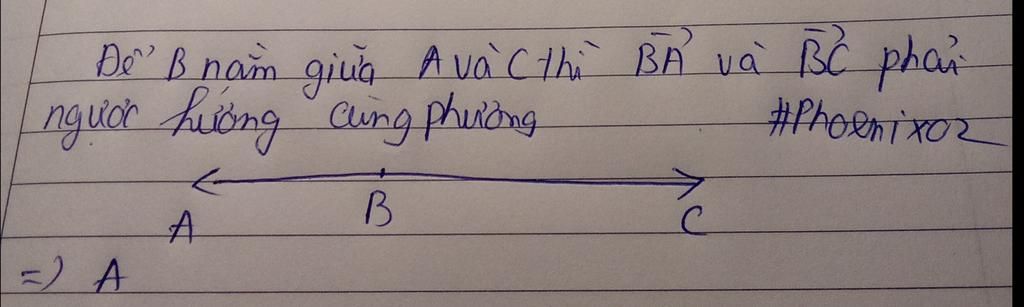 Để B nằm giữa A và C thì BA và BC phải
ngược hướng cùng phương
#Phoenix02
A B C
=) A